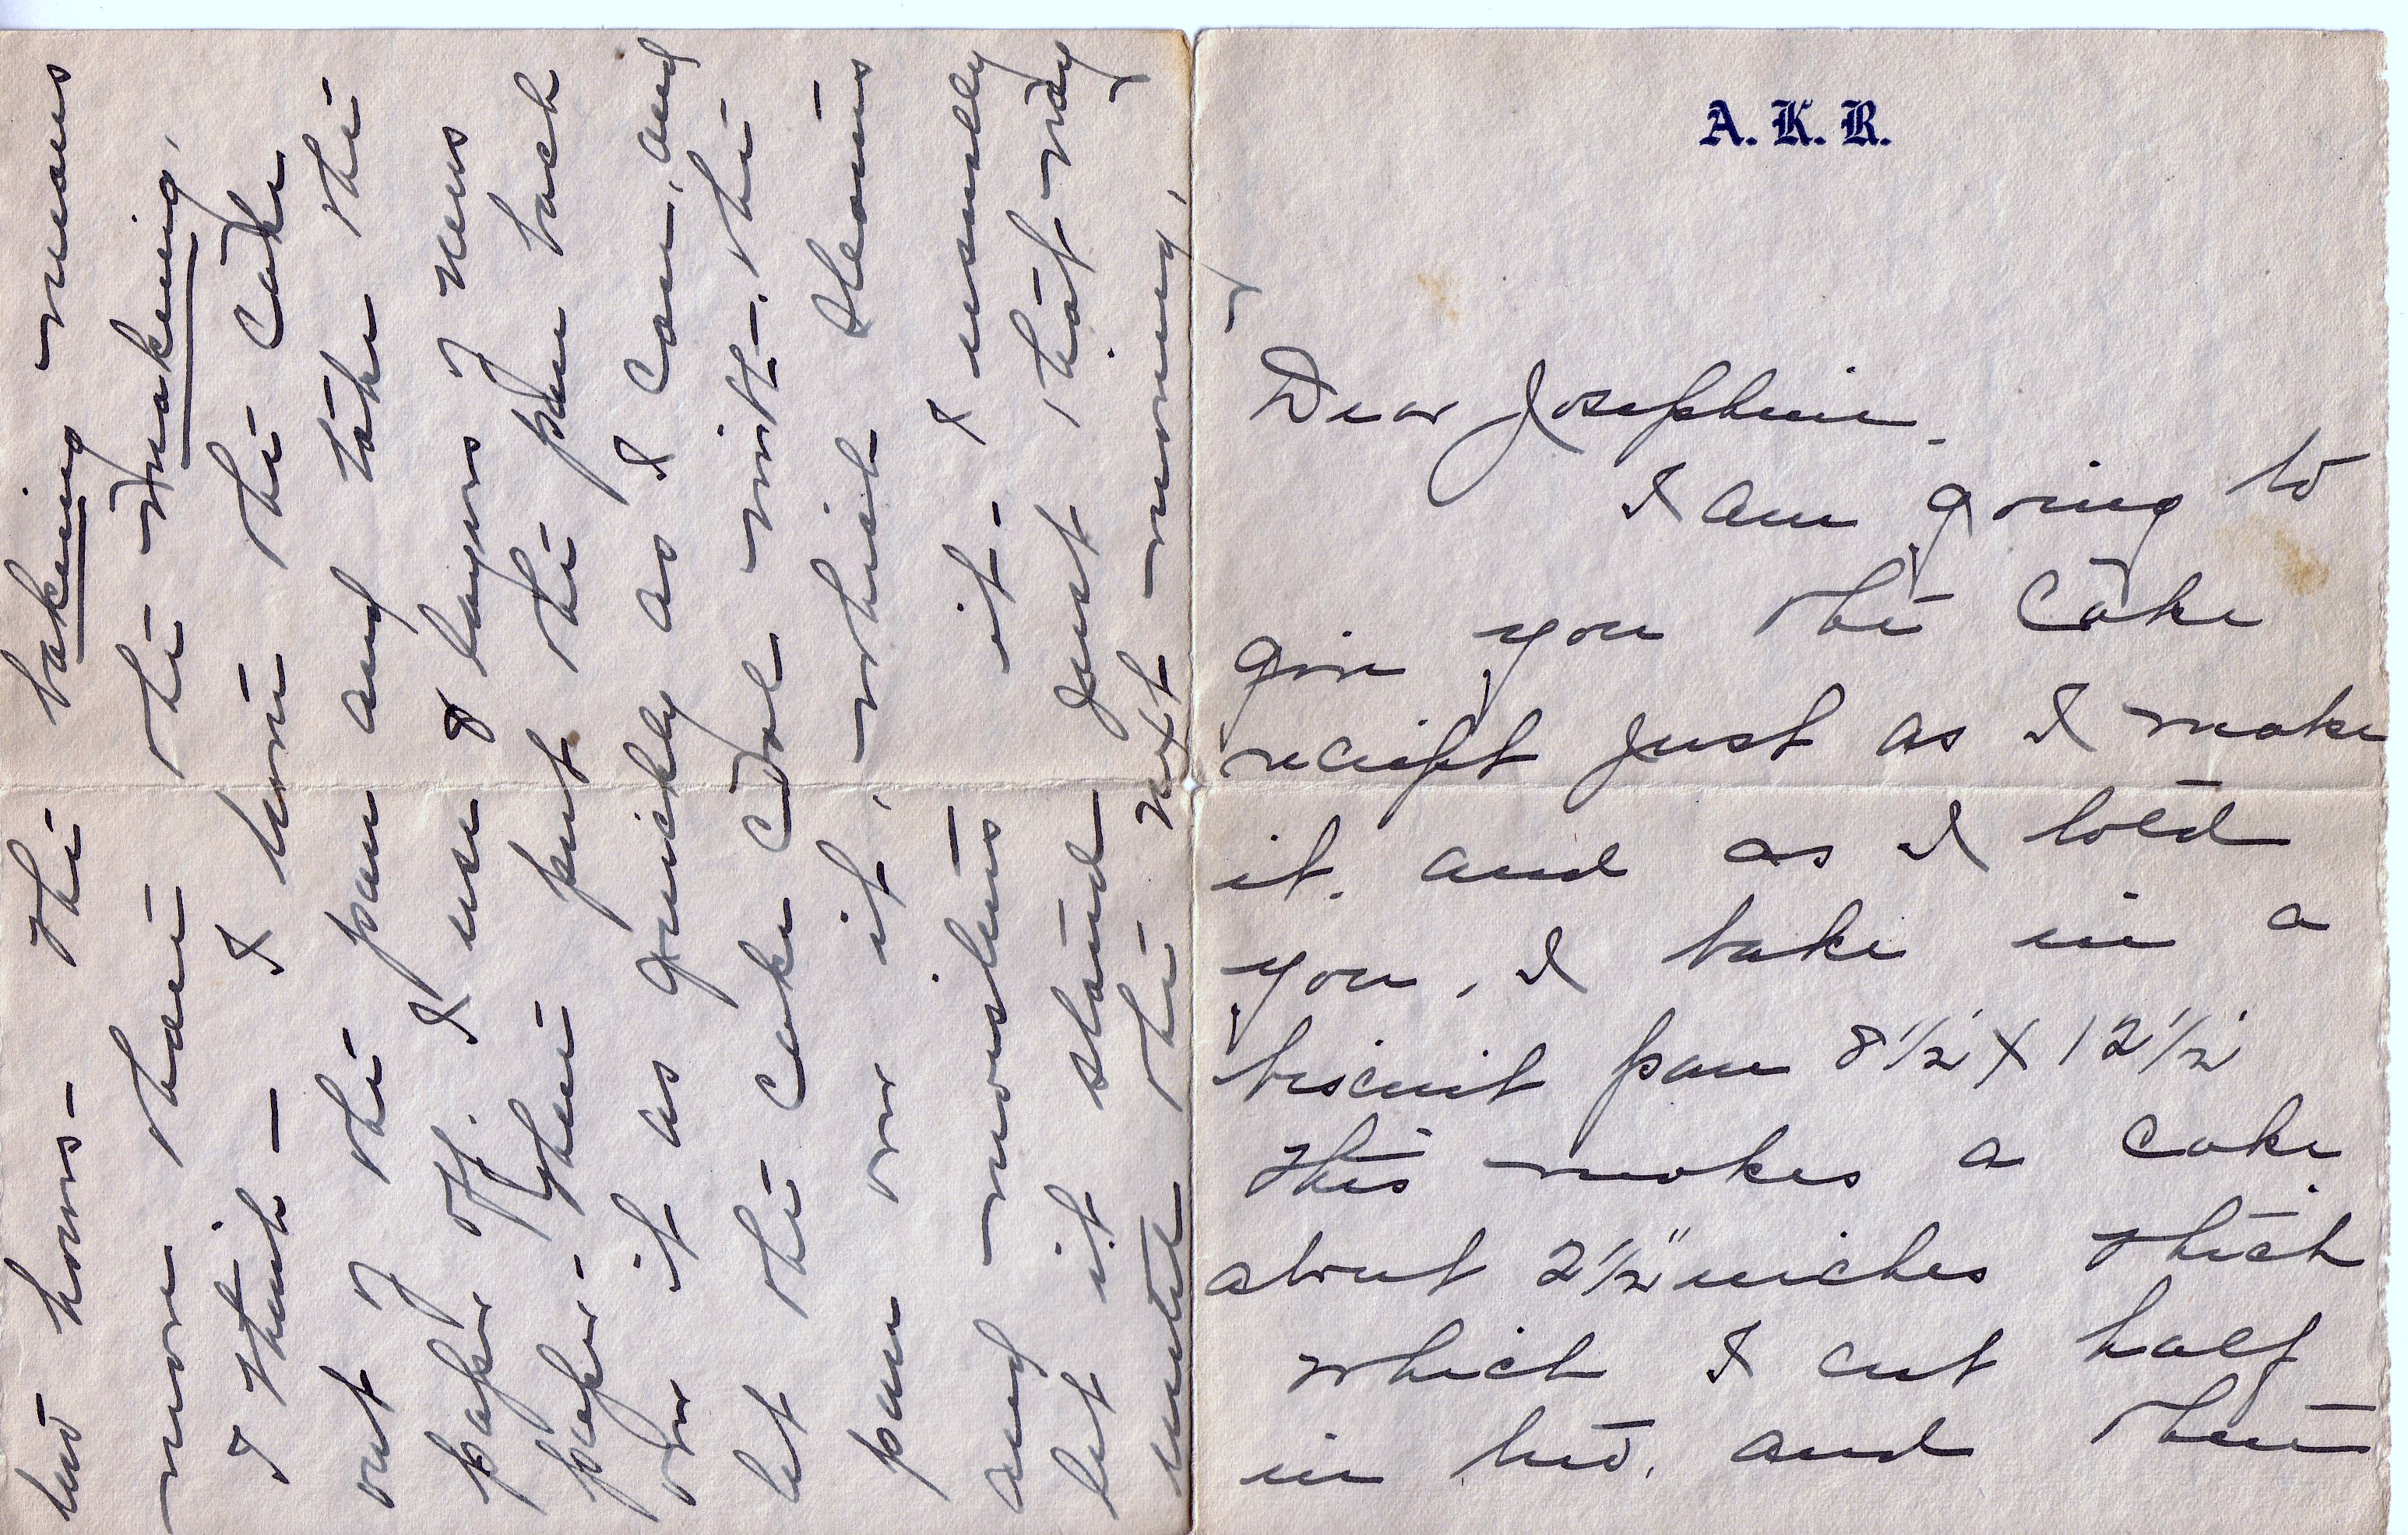 A. K. R.
Dear Josephine.
I am going to
give you the cake
receipt just as I make
it. and as I told
you, I bake in a
biscuit pan 8 1/2 X 12 1/2
This makes a cake
about 2 1/2" inches thick
which I cut half
in two, and then
two hours - The baking means
more than the making,
I think - I turn the cake
out of the pan and take the
paper off. I use 8 layers of news
paper - then put the pan back
on it as quickly as I can, and
let the cake cool with - the
pan on it, which steams
and moistens it - I usually
let it stand just that way
until the next morning,